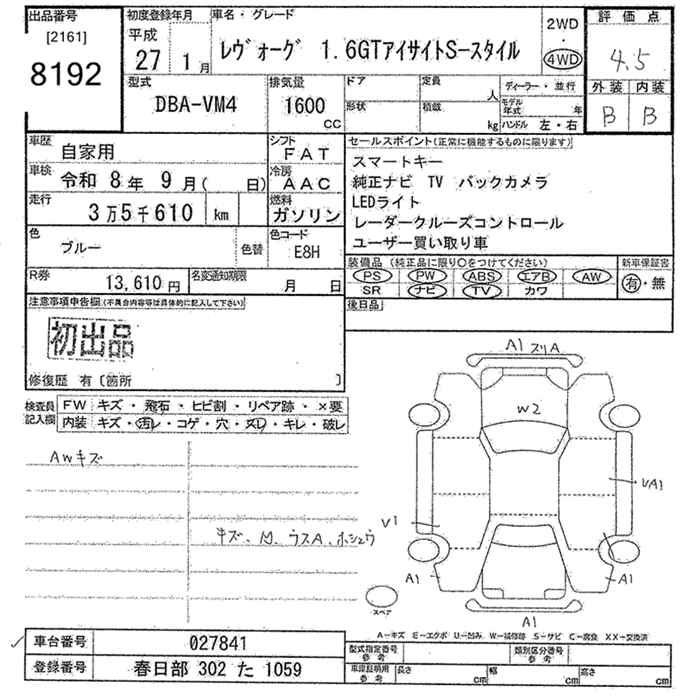 出品番号 初度登録年月 車名・グレード 2WD 評価点
[2161] 平成 ・
8192 27年 1月 レヴォーグ 1.6GTアイサイトS-スタイル 4WD 4.5
型式 排気量 ドア 定員 人 ディーラー・並行 外装 内装
DBA-VM4 1600cc 形状 積載 kg モデル年式 年 B B
ハンドル 左・右
車歴 自家用 シフト FAT セールスポイント(正常に機能するものに限ります)
車検 令和 8年 9月( 日) 冷房 AAC スマートキー
走行 3万5千610 km 燃料 ガソリン 純正ナビ TV バックカメラ
LEDライト
レーダークルーズコントロール
色 ブルー 色替 色コード E8H ユーザー買い取り車
装備品(純正品に限り○をつけてください) 新車保証書
R券 13,610円 名変通知期限 月 日 PS PW ABS エアB AW 有・無
SR ナビ TV カワ
注意事項申告欄(不具合内容等は具体的に記入して下さい) 後日品
初出品
修復歴 有〔箇所 〕
検査員記入欄 FW キズ・飛石・ヒビ割・リペア跡・×要
内装 キズ・汚レ・コゲ・穴・スレ・キレ・破レ
AWキズ
キズ、凹、ウスA、ホシュウ
A1 スリA
W2
VA1
V1
A1 A1
A1
スペア
A-キズ E-エクボ U-凹み W-補修跡 S-サビ C-腐食 XX-交換済
車台番号 027841 型式指定番号 参考 類別区分番号 参考
登録番号 春日部 302 た 1059 車庫証明用 参考 長さ cm 幅 cm 高さ cm